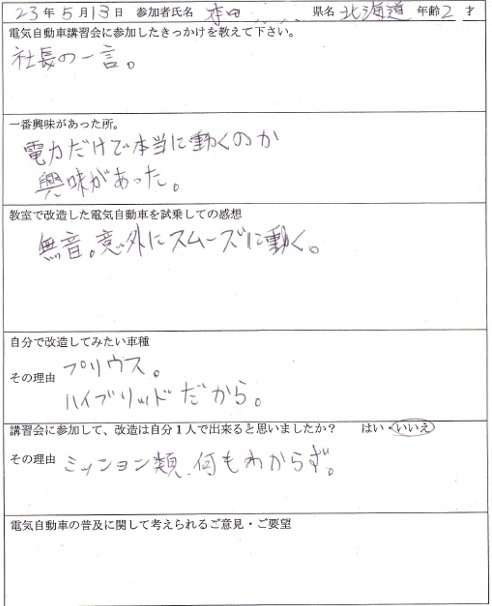 23年5月13日 参加者氏名 本田 県名 北海道 年齢2 才
電気自動車講習会に参加したきっかけを教えて下さい。
社長の一言。
一番興味があった所。
電力だけで本当に動くのか
興味があった。
教室で改造した電気自動車を試乗しての感想
無音。意外にスムーズに動く。
自分で改造してみたい車種
プリウス。
その理由
ハイブリッドだから。
講習会に参加して、改造は自分1人で出来ると思いましたか? はい・いいえ
その理由 ミッション類、何もわからず。
電気自動車の普及に関して考えられるご意見・ご要望